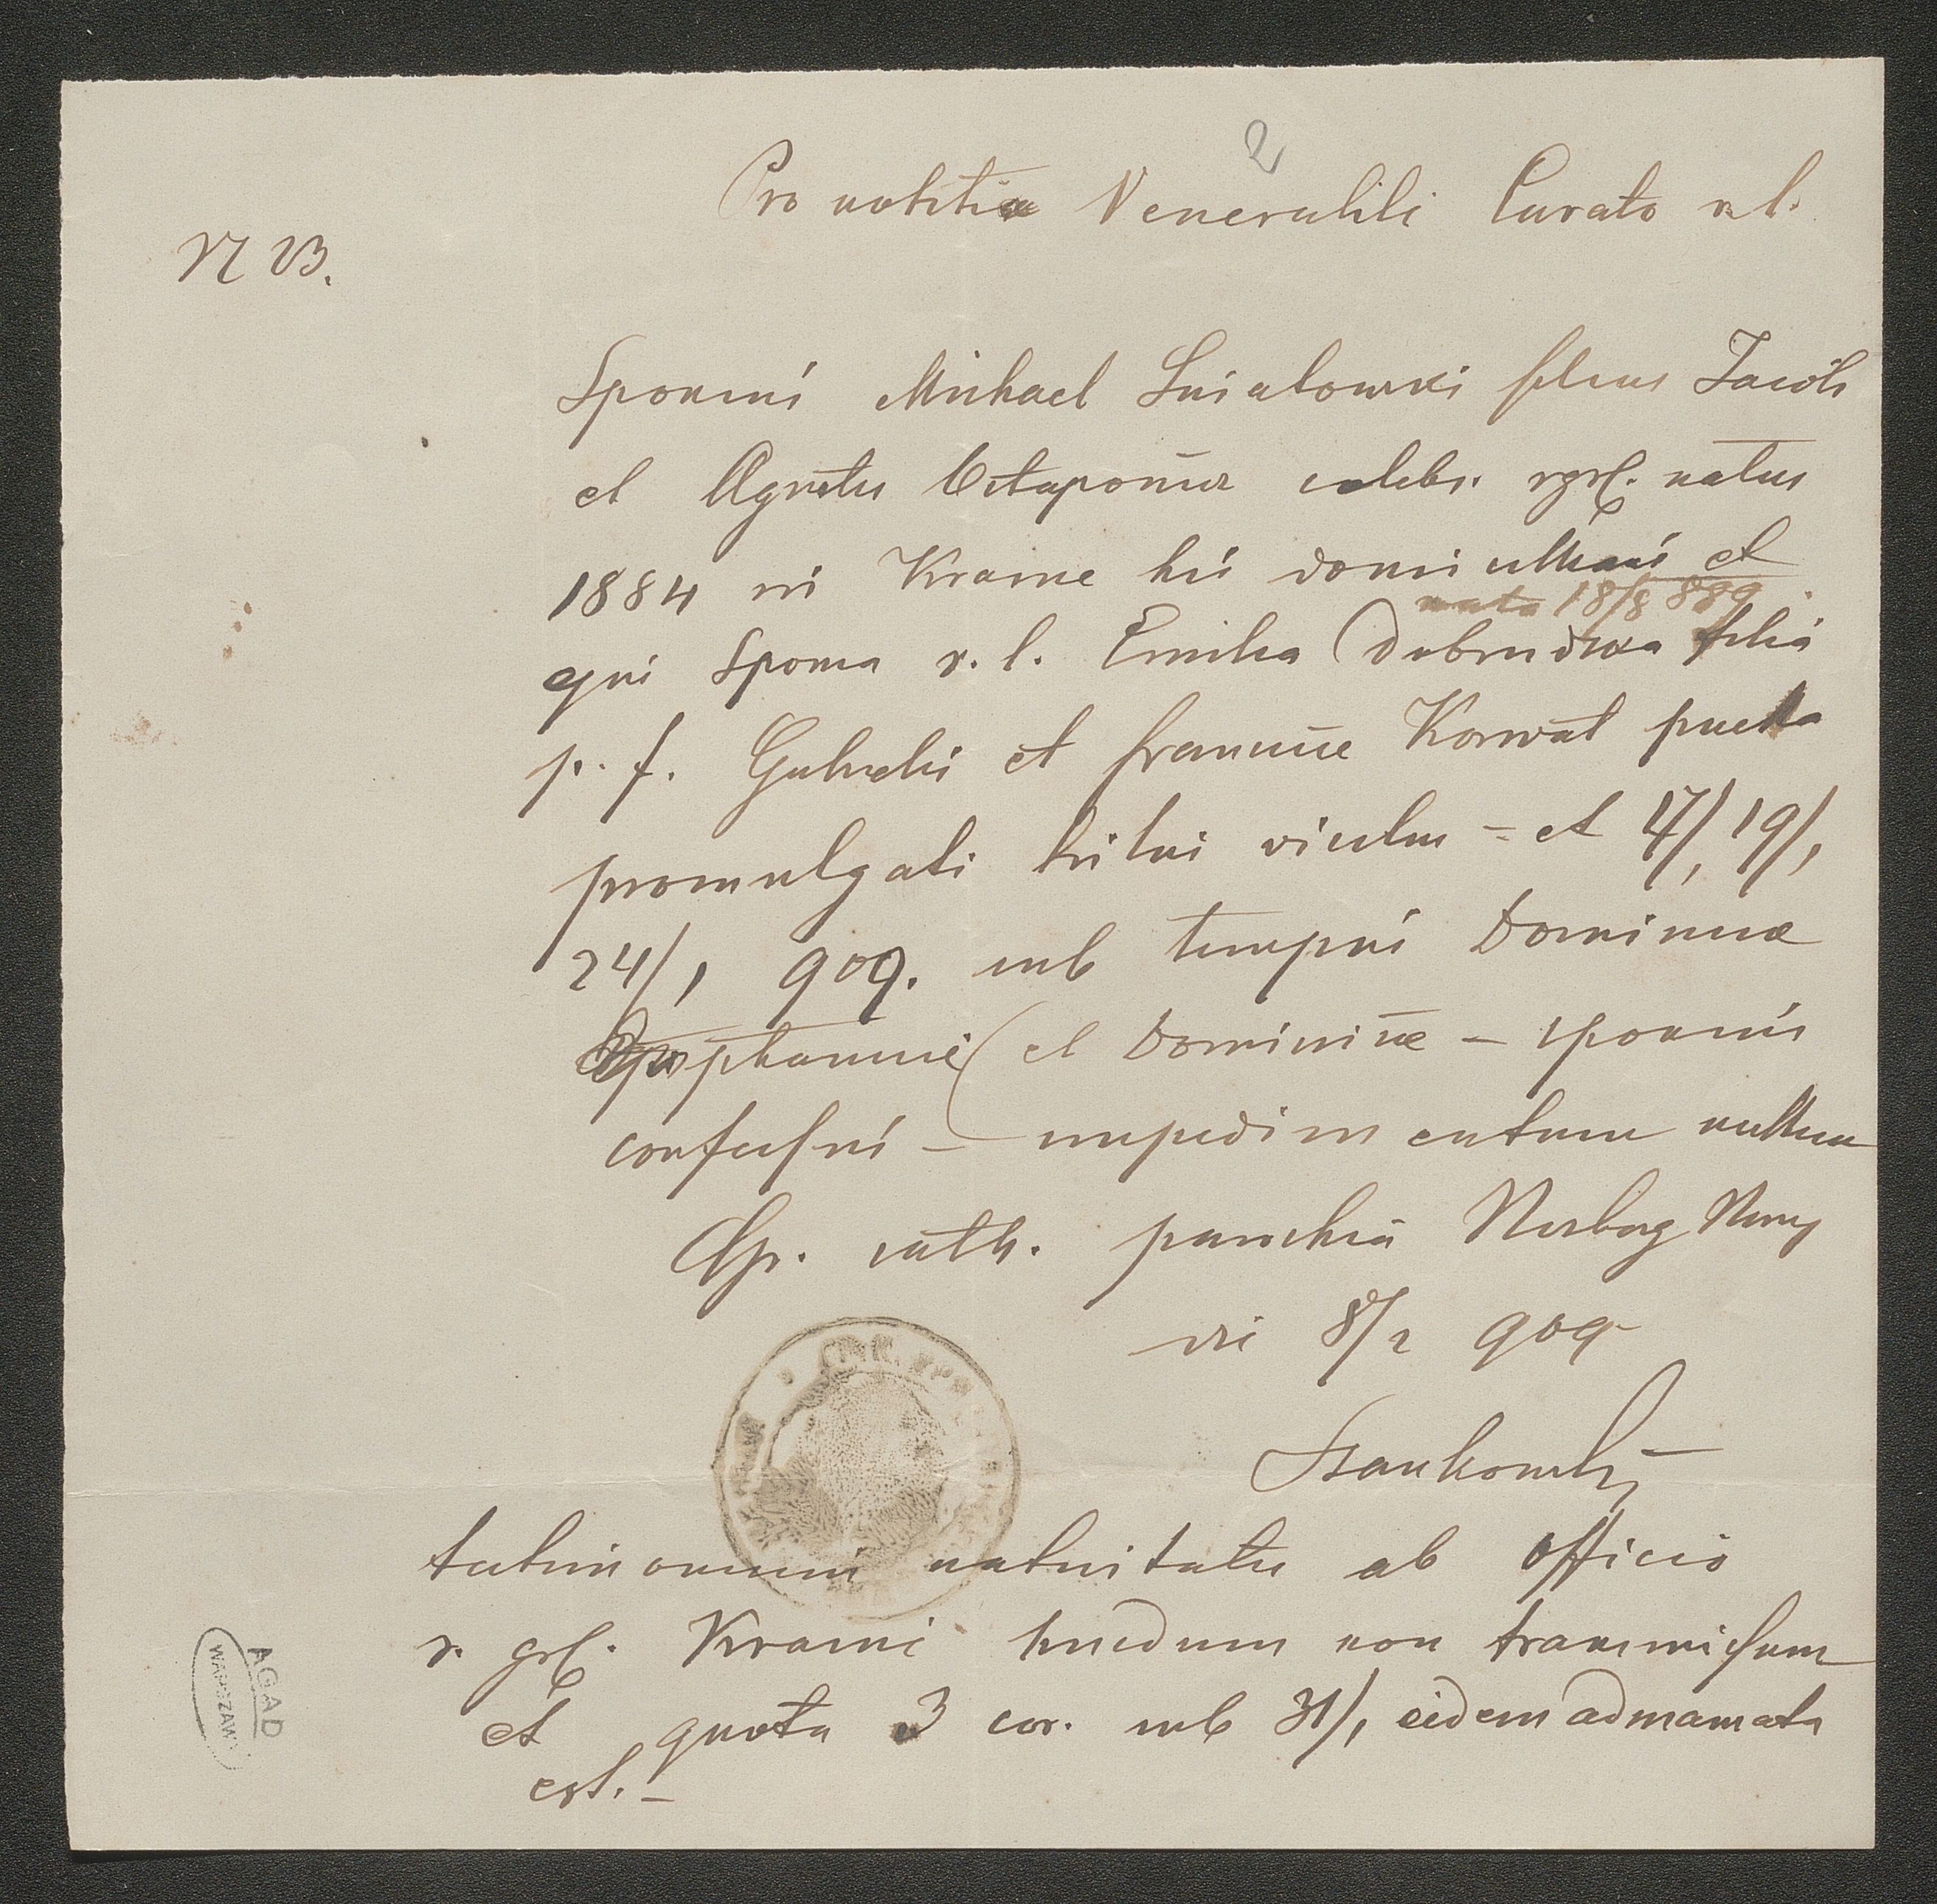 2
Pro notitia Venerabili Curato r. l.
NB.
Sponsus Michael Sniatowski filius Jacobi
et Agnetis Ostapowicz caelebs. rgrl. natus
1884 in Krasne hic domicilians et
nata 18/8 889
ejus Sponsa r. l. Emilia Dobrudzka filia
p. f. Gabrielis et Franciscae Korwat puella
promulgati tribus vicibus – et 17/1, 19/1,
24/1 909. sub tempus Dominicae
Epiphaniae et Dominicae – sponsus
confessus – impedimentum nullum
Gr. cath. parochia
die 8/2 909
Stankowski
testimonium nativitatis ab officio
r. grl. Krasne huc dum non transmissum
et quota 3 cor. sub 31/1 eidem admanuata
est. –
AGAD
WARSZAWA